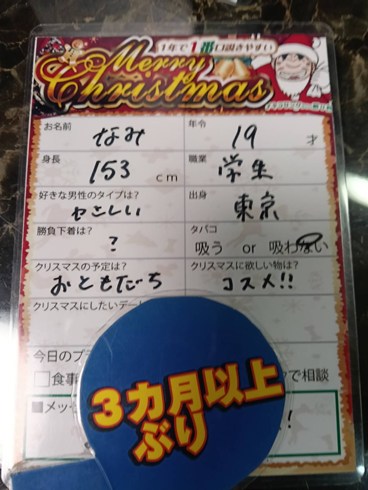 1年で1番口説きやすい
Merry
Christmas
お名前 なみ 年令 19 才
身長 153 cm 職業 学生
好きな男性のタイプは? やさしい 出身 東京
勝負下着は? ? タバコ 吸う or 吸わない
クリスマスの予定は? おともだち クリスマスに欲しい物は? コスメ!!
クリスマスにしたいデート
今日のプ
□食事 で相談
■メッセ !
3カ月以上
ぶり